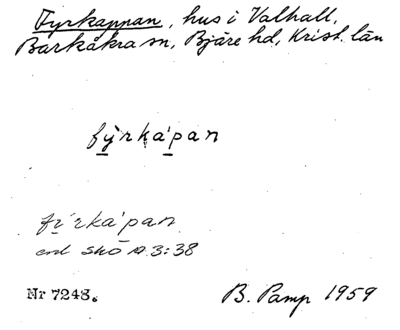 Fyrkappan, hus i Valhall,
Barkåkra sn, Bjäre hd, Krist. län
fỳrká̱pan
fy̱ŕrká̱pan
enl skō A.3:38
Nr 7248.
B. Pamp 1959